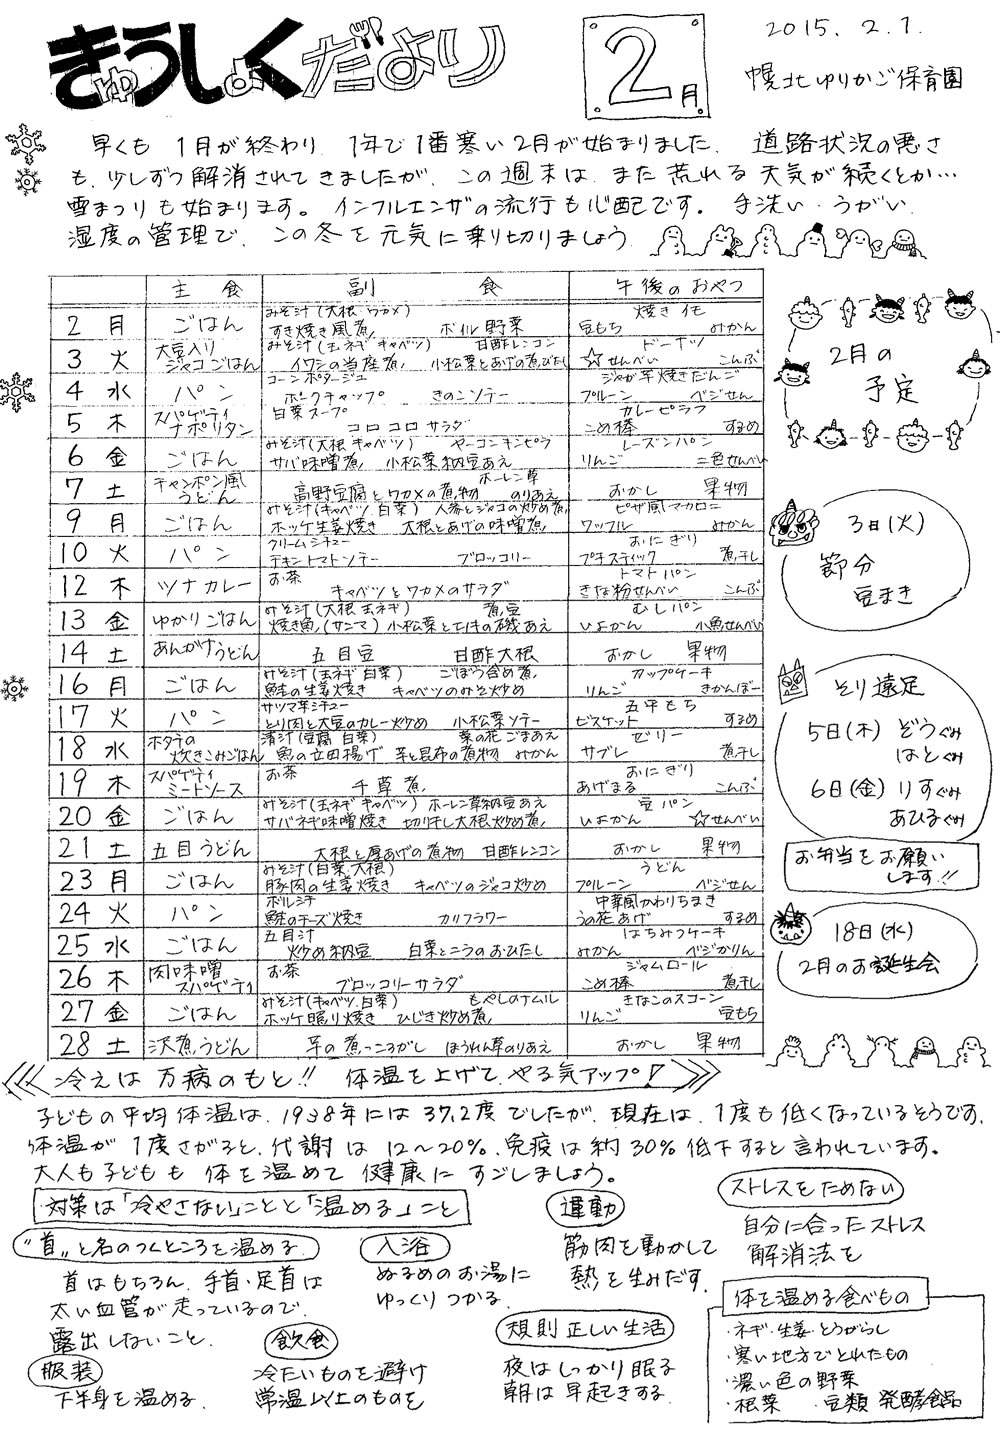 きゅうしょくだより
2月
2015. 2. 1.
幌北ゆりかご保育園
早くも 1月が終わり、1年で1番寒い2月が始まりました。 道路状況の悪さ
も、少しずつ解消されてきましたが、この週末は、また荒れる天気が続くとか…
雪まつりも始まります。インフルエンザの流行も心配です。手洗い・うがい、
湿度の管理で、この冬を元気に乗り切りましょう。
主食 副食 午後のおやつ
2 月 ごはん みそ汁(大根・ワカメ) すき焼き風煮 ボイル野菜 焼き芋 豆もち みかん
3 火 大豆入りジャコごはん みそ汁(玉ネギ キャベツ) 甘酢レンコン イワシの当座煮 小松菜とあげの煮びたし ドーナツ ☆せんべい こんぶ
4 水 パン コーンポタージュ ポークチャップ きのこソテー ジャガ芋焼きだんご プルーン ベジせん
5 木 スパゲティナポリタン 白菜スープ コロコロサラダ カレーピラフ こめ棒 するめ
6 金 ごはん みそ汁(大根 キャベツ) ヤーコンキンピラ サバ味噌煮 小松菜納豆あえ レーズンパン りんご 二色せんべい
7 土 チャンポン風うどん 高野豆腐とワカメの煮物 ホーレン草のりあえ おかし 果物
9 月 ごはん みそ汁(キャベツ 白菜) 人参とジャコの炒め煮 ホッケ生姜焼き 大根とあげの味噌煮 ピザ風マカロニ ワッフル みかん
10 火 パン クリームシチュー チキントマトソテー ブロッコリー おにぎり プチスティック 煮干し
12 木 ツナカレー お茶 キャベツとワカメのサラダ トマトパン きな粉せんべい こんぶ
13 金 ゆかりごはん みそ汁(大根 玉ネギ) 煮豆 焼き魚(サンマ) 小松菜とエノキの磯あえ むしパン いよかん 小魚せんべい
14 土 あんかけうどん 五目豆 甘酢大根 おかし 果物
16 月 ごはん みそ汁(玉ネギ 白菜) ごぼう含め煮 鮭の生姜焼き キャベツのみそ炒め カップケーキ りんご きかんぼー
17 火 パン サツマ芋シチュー とり肉と大豆のカレー炒め 小松菜ソテー 五平もち ビスケット するめ
18 水 ホタテの炊きこみごはん 清汁(豆腐 白菜) 菜の花ごまあえ 魚の立田揚げ 芋と昆布の煮物 みかん ゼリー サブレ 煮干し
19 木 スパゲティミートソース お茶 千草煮 おにぎり あげまる こんぶ
20 金 ごはん みそ汁(玉ネギ キャベツ) ホーレン草納豆あえ サバネギ味噌焼き 切り干し大根炒め煮 豆パン いよかん ☆せんべい
21 土 五目うどん 大根と厚あげの煮物 甘酢レンコン おかし 果物
23 月 ごはん みそ汁(白菜 大根) 豚肉の生姜焼き キャベツのジャコ炒め うどん プルーン ベジせん
24 火 パン ボルシチ 鮭のチーズ焼き カリフラワー 中華風かわりちまき うの花あげ するめ
25 水 ごはん 五目汁 炒め納豆 白菜とニラのおひたし はちみつケーキ みかん ベジかりん
26 木 肉味噌スパゲティ お茶 ブロッコリーサラダ ジャムロール こめ棒 煮干し
27 金 ごはん みそ汁(キャベツ 白菜) もやしのナムル ホッケ照り焼き ひじき炒め煮 きなこのスコーン りんご 豆もち
28 土 沢煮うどん 芋の煮っころがし ほうれん草のりあえ おかし 果物
2月の
予定
3日(火)
節分
豆まき
そり遠足
5日(木) ぞうぐみ
はとぐみ
6日(金) りすぐみ
あひるぐみ
お弁当をお願い
します!!
18日(水)
2月のお誕生会
冷えは万病のもと!! 体温を上げて、やる気アップ!
子どもの平均体温は、1938年には37.2度でしたが、現在は、1度も低くなっているそうです。
体温が1度さがると、代謝は12〜20%、免疫は約30%低下すると言われています。
大人も子どもも 体を温めて 健康に すごしましょう。
対策は「冷やさない」ことと「温める」こと
"首"と名のつくところを温める
首はもちろん、手首・足首は
太い血管が走っているので、
露出しないこと。
服装
下半身を温める。
入浴
ぬるめのお湯に
ゆっくりつかる。
飲食
冷たいものを避け
常温以上のものを
運動
筋肉を動かして
熱を生みだす。
規則正しい生活
夜はしっかり眠る
朝は早起きする。
ストレスをためない
自分に合ったストレス
解消法を
体を温める食べもの
・ネギ・生姜・とうがらし
・寒い地方でとれたもの
・濃い色の野菜
・根菜 ・豆類 発酵食品